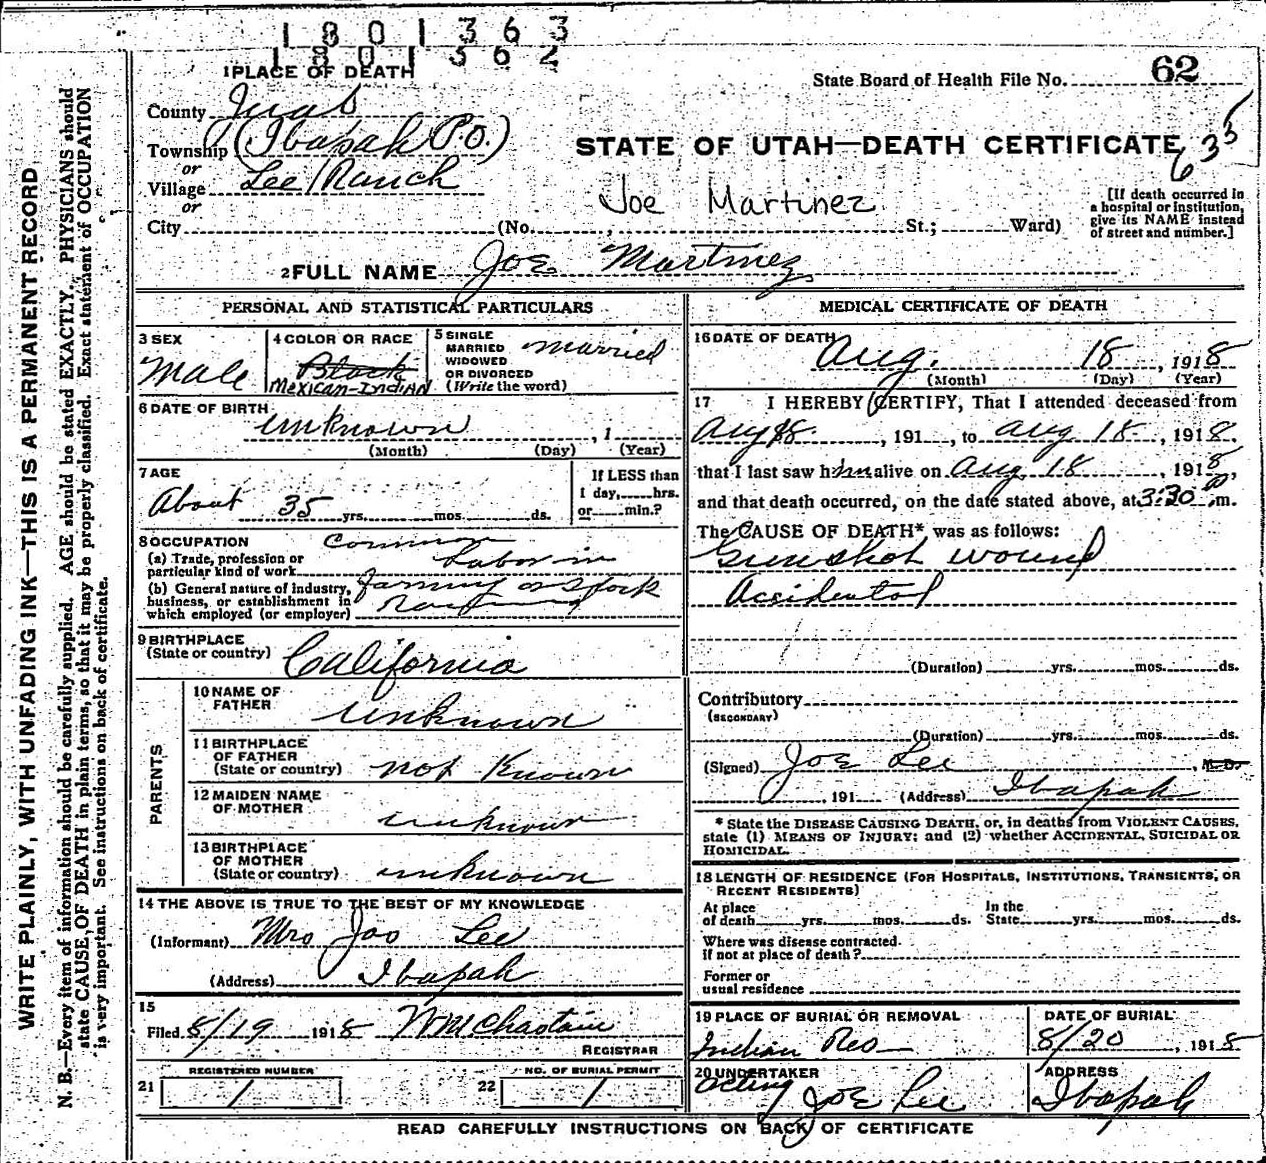 1801363
1801362
1 PLACE OF DEATH
State Board of Health File No. 62
County Juab
Township (Ibapah P.O.)
or
Village Lee Ranch
or
City (No. , St.; Ward)
STATE OF UTAH—DEATH CERTIFICATE
635
Joe Martinez
[If death occurred in
a hospital or institution,
give its NAME instead
of street and number.]
2 FULL NAME Joe Martinez
PERSONAL AND STATISTICAL PARTICULARS
3 SEX
Male
4 COLOR OR RACE
Black
Mexican-Indian
5 SINGLE
MARRIED
WIDOWED
OR DIVORCED
(Write the word)
Married
6 DATE OF BIRTH
unknown , 1
(Month) (Day) (Year)
7 AGE
About 35 yrs. mos. ds.
If LESS than
1 day, hrs.
or min.?
8 OCCUPATION
(a) Trade, profession or
particular kind of work
Common
Labor in
(b) General nature of industry,
business, or establishment in
which employed (or employer)
farming or Stock
9 BIRTHPLACE
(State or country) California
PARENTS
10 NAME OF
FATHER unknown
11 BIRTHPLACE
OF FATHER
(State or country) not Known
12 MAIDEN NAME
OF MOTHER unknown
13 BIRTHPLACE
OF MOTHER
(State or country) unknown
14 THE ABOVE IS TRUE TO THE BEST OF MY KNOWLEDGE
(Informant) Mrs Joe Lee
(Address) Ibapah
15
Filed 8/19 1918 Wm Chastain
REGISTRAR
21 REGISTERED NUMBER 1
22 NO. OF BURIAL PERMIT 1
MEDICAL CERTIFICATE OF DEATH
16 DATE OF DEATH
Aug. 18, 1918
(Month) (Day) (Year)
17 I HEREBY CERTIFY, That I attended deceased from
Aug 18 , 191 , to Aug 18 , 1918,
that I last saw him alive on Aug 18 , 1918,
and that death occurred, on the date stated above, at 3:30 P.m.
The CAUSE OF DEATH* was as follows:
Gunshot wound
Accidental
(Duration) yrs. mos. ds.
Contributory
(SECONDARY)
(Duration) yrs. mos. ds.
(Signed) Joe Lee , M. D.
, 191 (Address) Ibapah
* State the DISEASE CAUSING DEATH, or, in deaths from VIOLENT CAUSES,
state (1) MEANS OF INJURY; and (2) whether ACCIDENTAL, SUICIDAL OR
HOMICIDAL.
18 LENGTH OF RESIDENCE (FOR HOSPITALS, INSTITUTIONS, TRANSIENTS, OR
RECENT RESIDENTS)
At place
of death yrs. mos. ds.
In the
State yrs. mos. ds.
Where was disease contracted.
If not at place of death?
Former or
usual residence
19 PLACE OF BURIAL OR REMOVAL
Indian Res
DATE OF BURIAL
8/20, 1918
20 UNDERTAKER
Acting Joe Lee
ADDRESS
Ibapah
READ CAREFULLY INSTRUCTIONS ON BACK OF CERTIFICATE
WRITE PLAINLY, WITH UNFADING INK—THIS IS A PERMANENT RECORD
N. B.—Every item of information should be carefully supplied. AGE should be stated EXACTLY. PHYSICIANS should
state CAUSE OF DEATH in plain terms, so that it may be properly classified. Exact statement of OCCUPATION
is very important. See instructions on back of certificate.